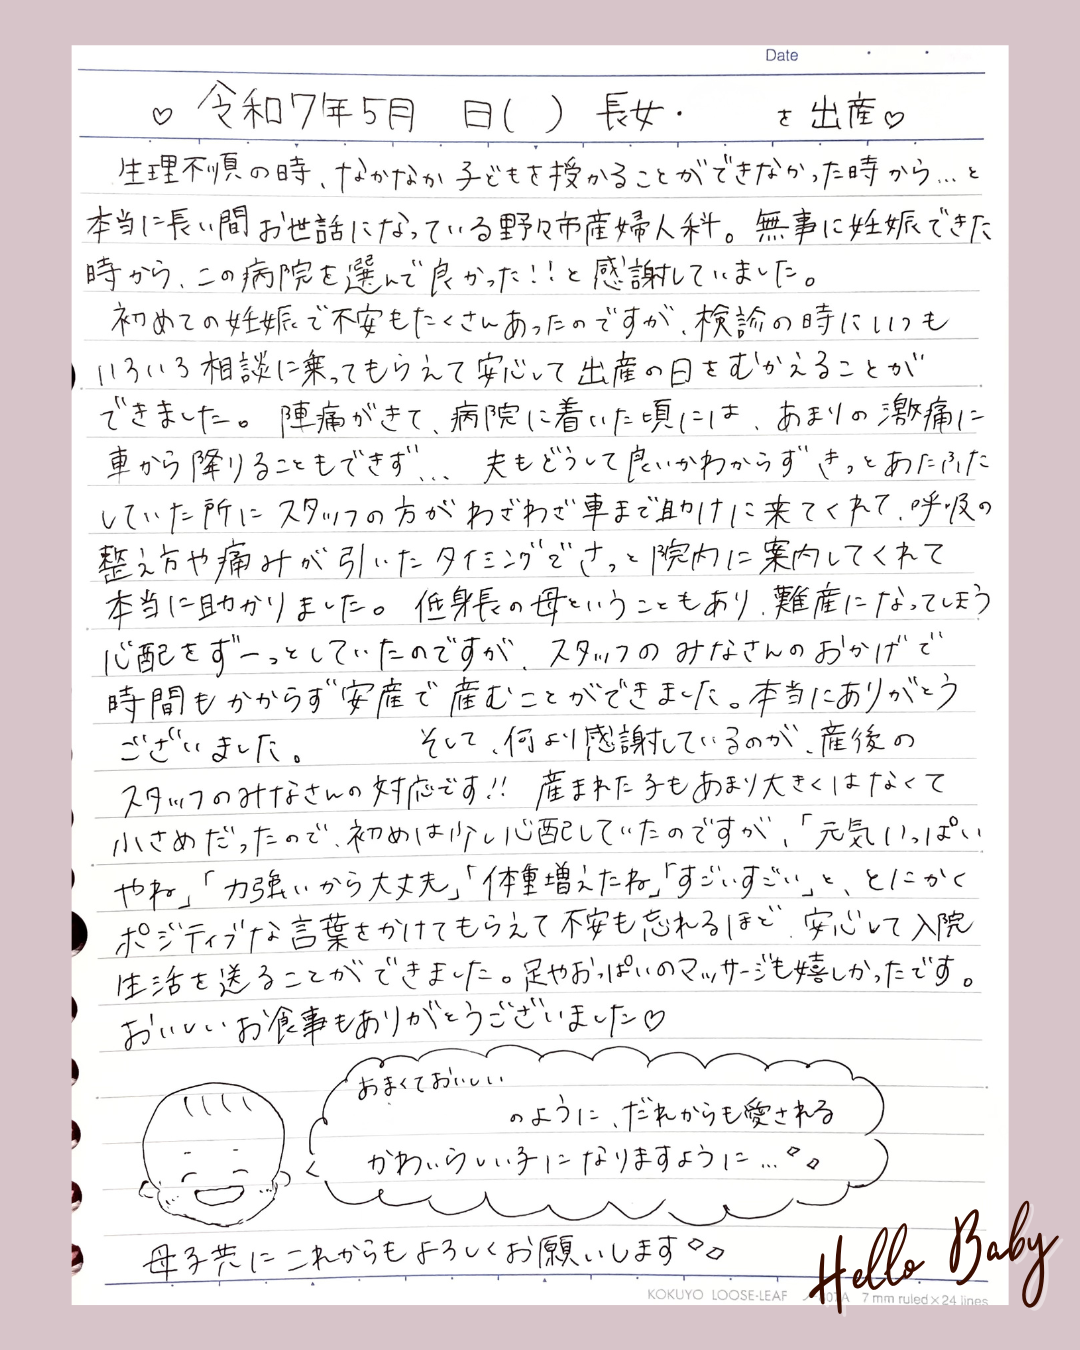 Date
♡ 令和7年5月 日( ) 長女・ を出産♡
生理不順の時、なかなか子どもを授かることができなかった時から…と
本当に長い間お世話になっている野々市産婦人科。無事に妊娠できた
時から、この病院を選んで良かった!!と感謝していました。
初めての妊娠で不安もたくさんあったのですが、検診の時にいつも
いろいろ相談に乗ってもらえて安心して出産の日をむかえることが
できました。陣痛がきて、病院に着いた頃には、あまりの激痛に
車から降りることもできず… 夫もどうして良いかわからずきっとあたふた
していた所にスタッフの方がわざわざ車まで助けに来てくれて、呼吸の
整え方や痛みが引いたタイミングでさっと院内に案内してくれて
本当に助かりました。低身長の母ということもあり、難産になってしまう
心配をずーっとしていたのですが、スタッフのみなさんのおかげで
時間もかからず安産で産むことができました。本当にありがとう
ございました。 そして、何より感謝しているのが、産後の
スタッフのみなさんの対応です!! 産まれた子もあまり大きくはなくて
小さめだったので、初めは少し心配していたのですが、「元気いっぱい
やね」「力強いから大丈夫」「体重増えたね」「すごいすごい」と、とにかく
ポジティブな言葉をかけてもらえて不安も忘れるほど、安心して入院
生活を送ることができました。足やおっぱいのマッサージも嬉しかったです。
おいしいお食事もありがとうございました♡
あまくておいしい
のように、だれからも愛される
かわいらしい子になりますように…
母子共にこれからもよろしくお願いします
Hello Baby
KOKUYO LOOSE-LEAF 7 mm ruled×24 lines